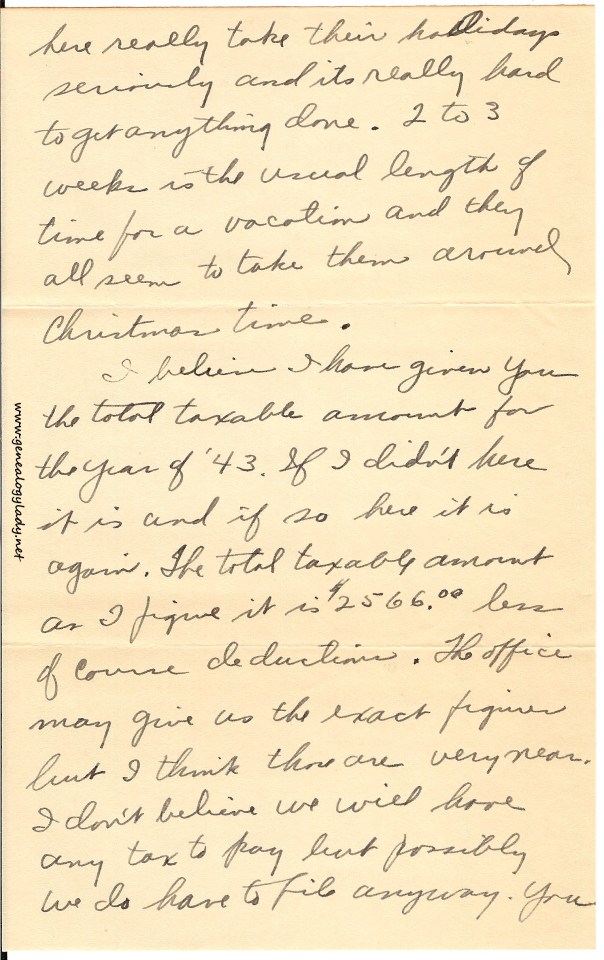 here really take their holidays
seriously and its really hard
to get anything done. 2 to 3
weeks is the usual length of
time for a vacation and they
all seem to take them around
Christmas time.
I believe I have given you
the total taxable amount for
the year of '43. If I didn't here
it is and if so here it is
again. The total taxable amount
as I figure it is $2566.00 less
of course deductions. The office
may give us the exact figures
but I think those are very near.
I don't believe we will have
any tax to pay but possibly
we do have to file anyway. You
www.genealogylady.net